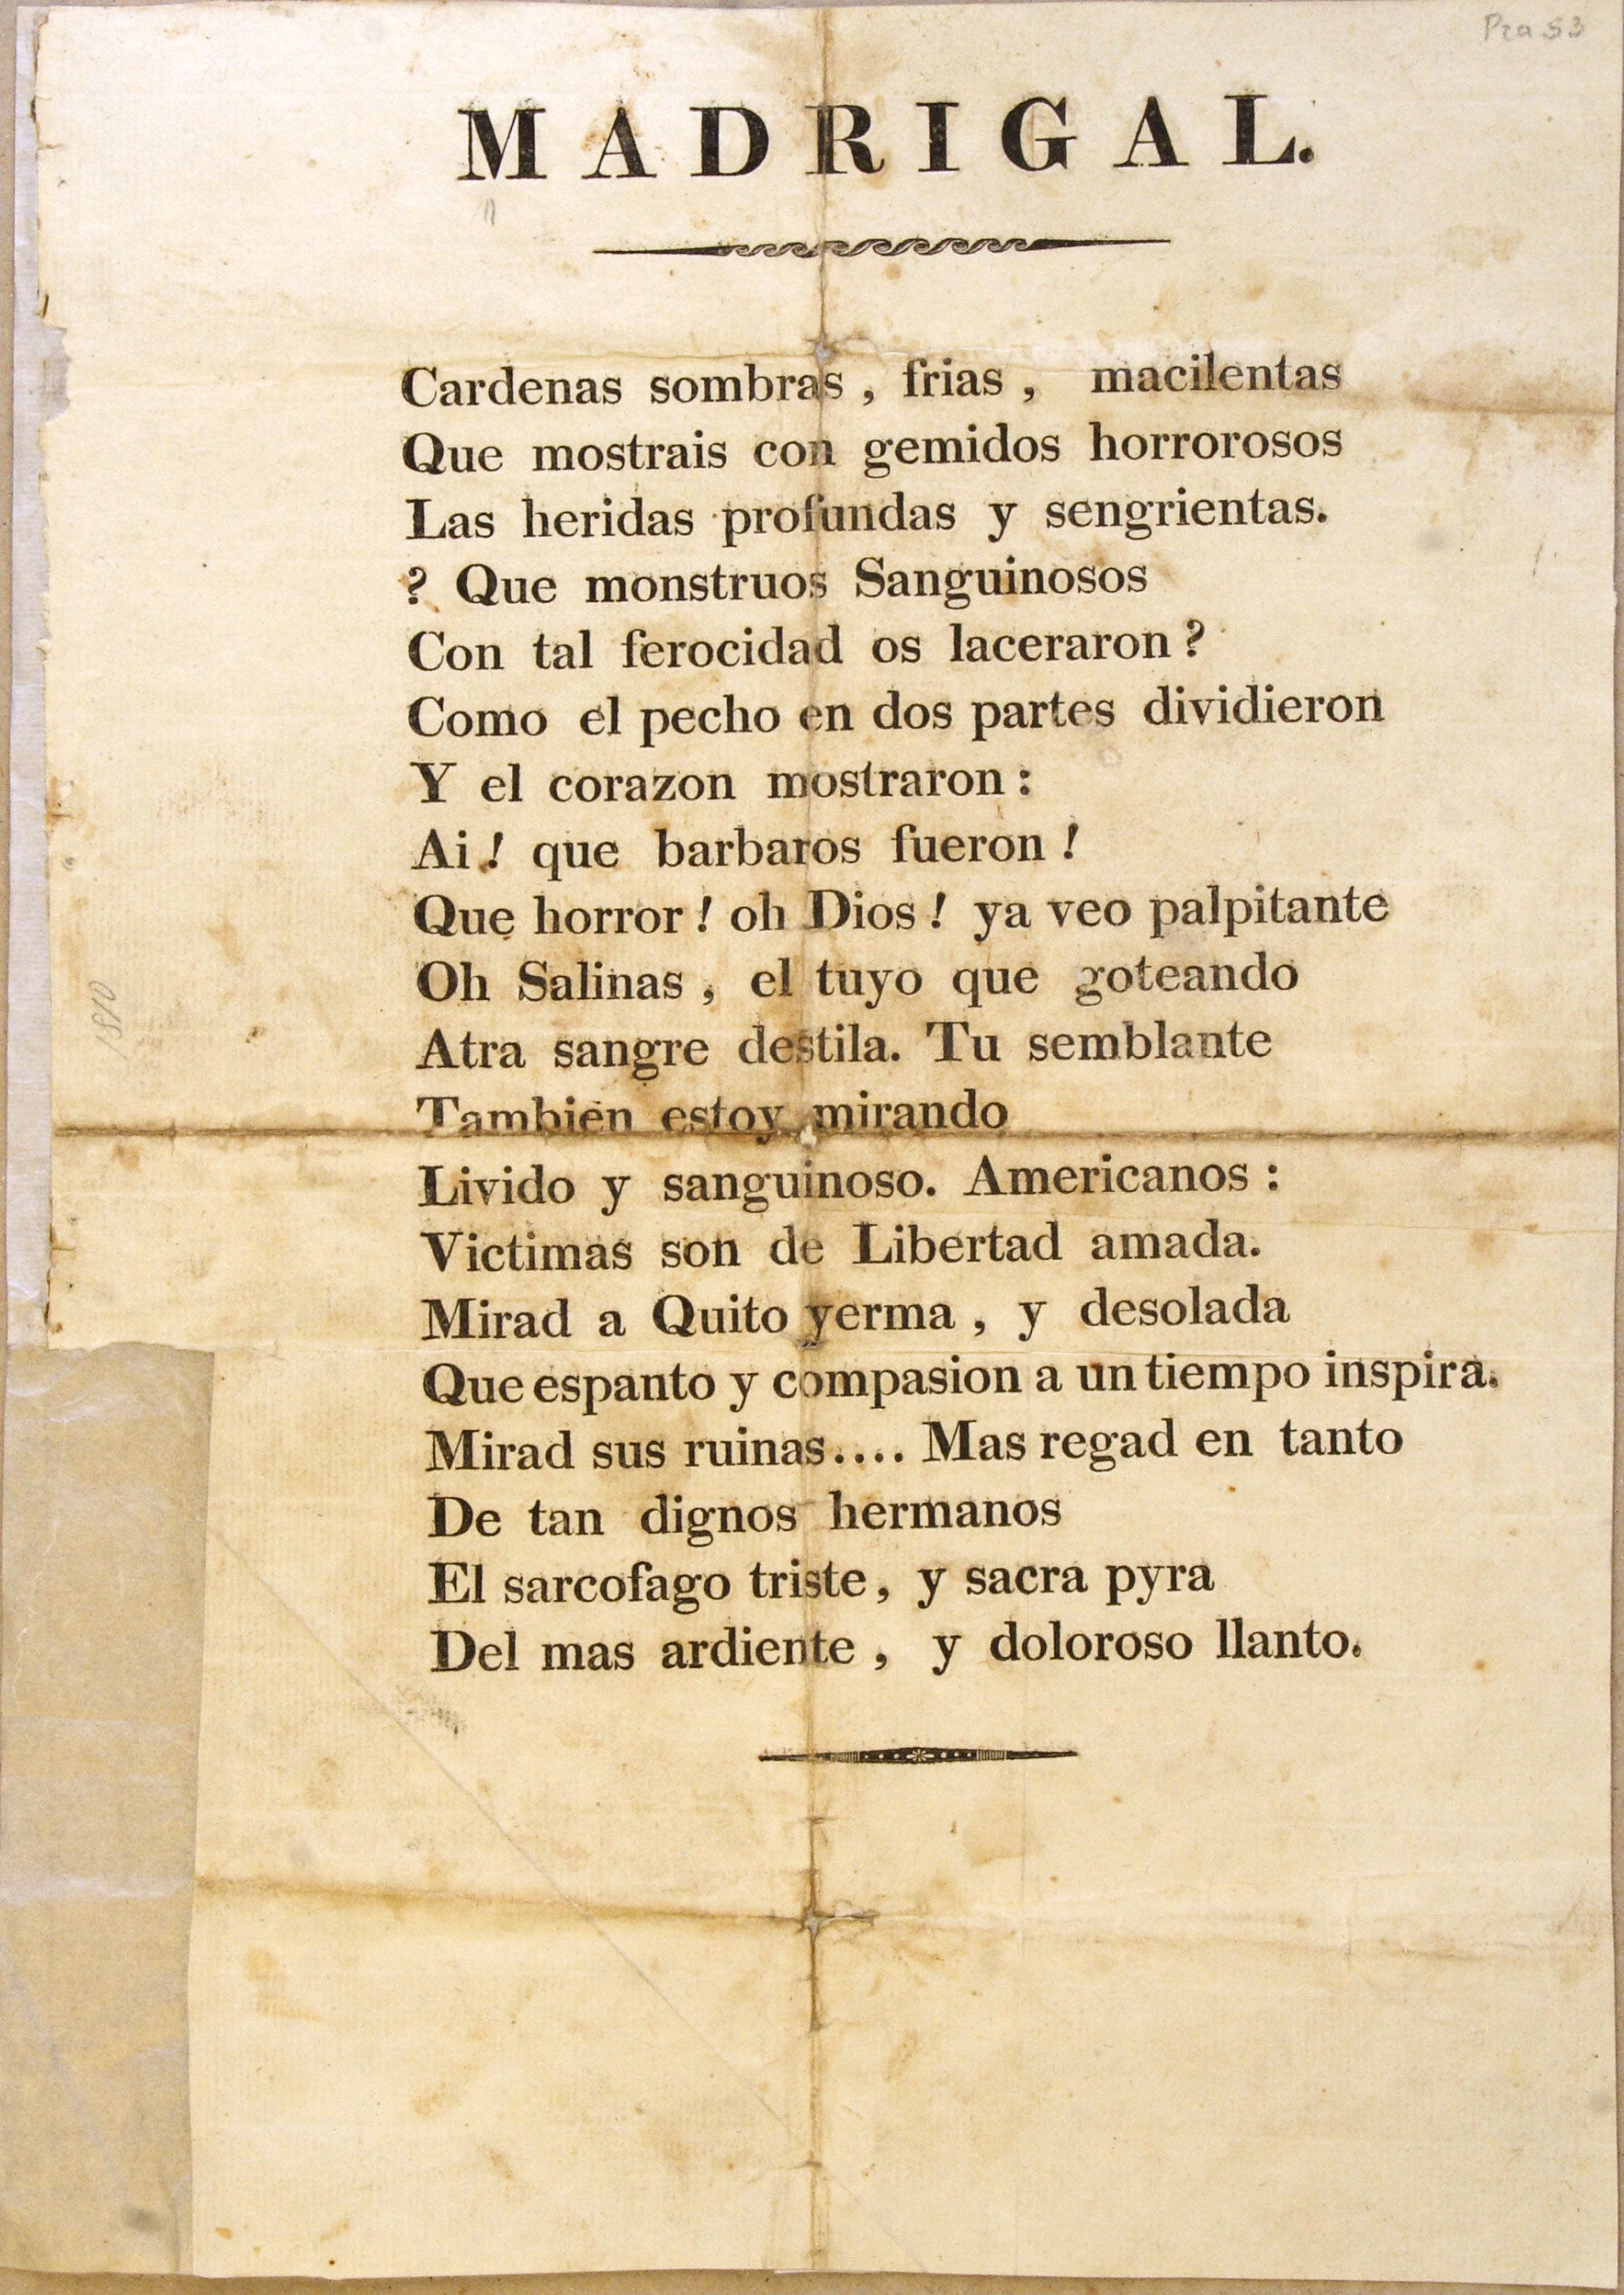 Pza 53
MADRIGAL.
Cardenas sombras, frias, macilentas
Que mostrais con gemidos horrorosos
Las heridas profundas y sengrientas.
? Que monstruos Sanguinosos
Con tal ferocidad os laceraron?
Como el pecho en dos partes dividieron
Y el corazon mostraron:
Ai! que barbaros fueron!
Que horror! oh Dios! ya veo palpitante
Oh Salinas, el tuyo que goteando
Atra sangre destila. Tu semblante
Tambien estoy mirando
Livido y sanguinoso. Americanos:
Victimas son de Libertad amada.
Mirad a Quito yerma, y desolada
Que espanto y compasion a un tiempo inspira.
Mirad sus ruinas.... Mas regad en tanto
De tan dignos hermanos
El sarcofago triste, y sacra pyra
Del mas ardiente, y doloroso llanto.
1810